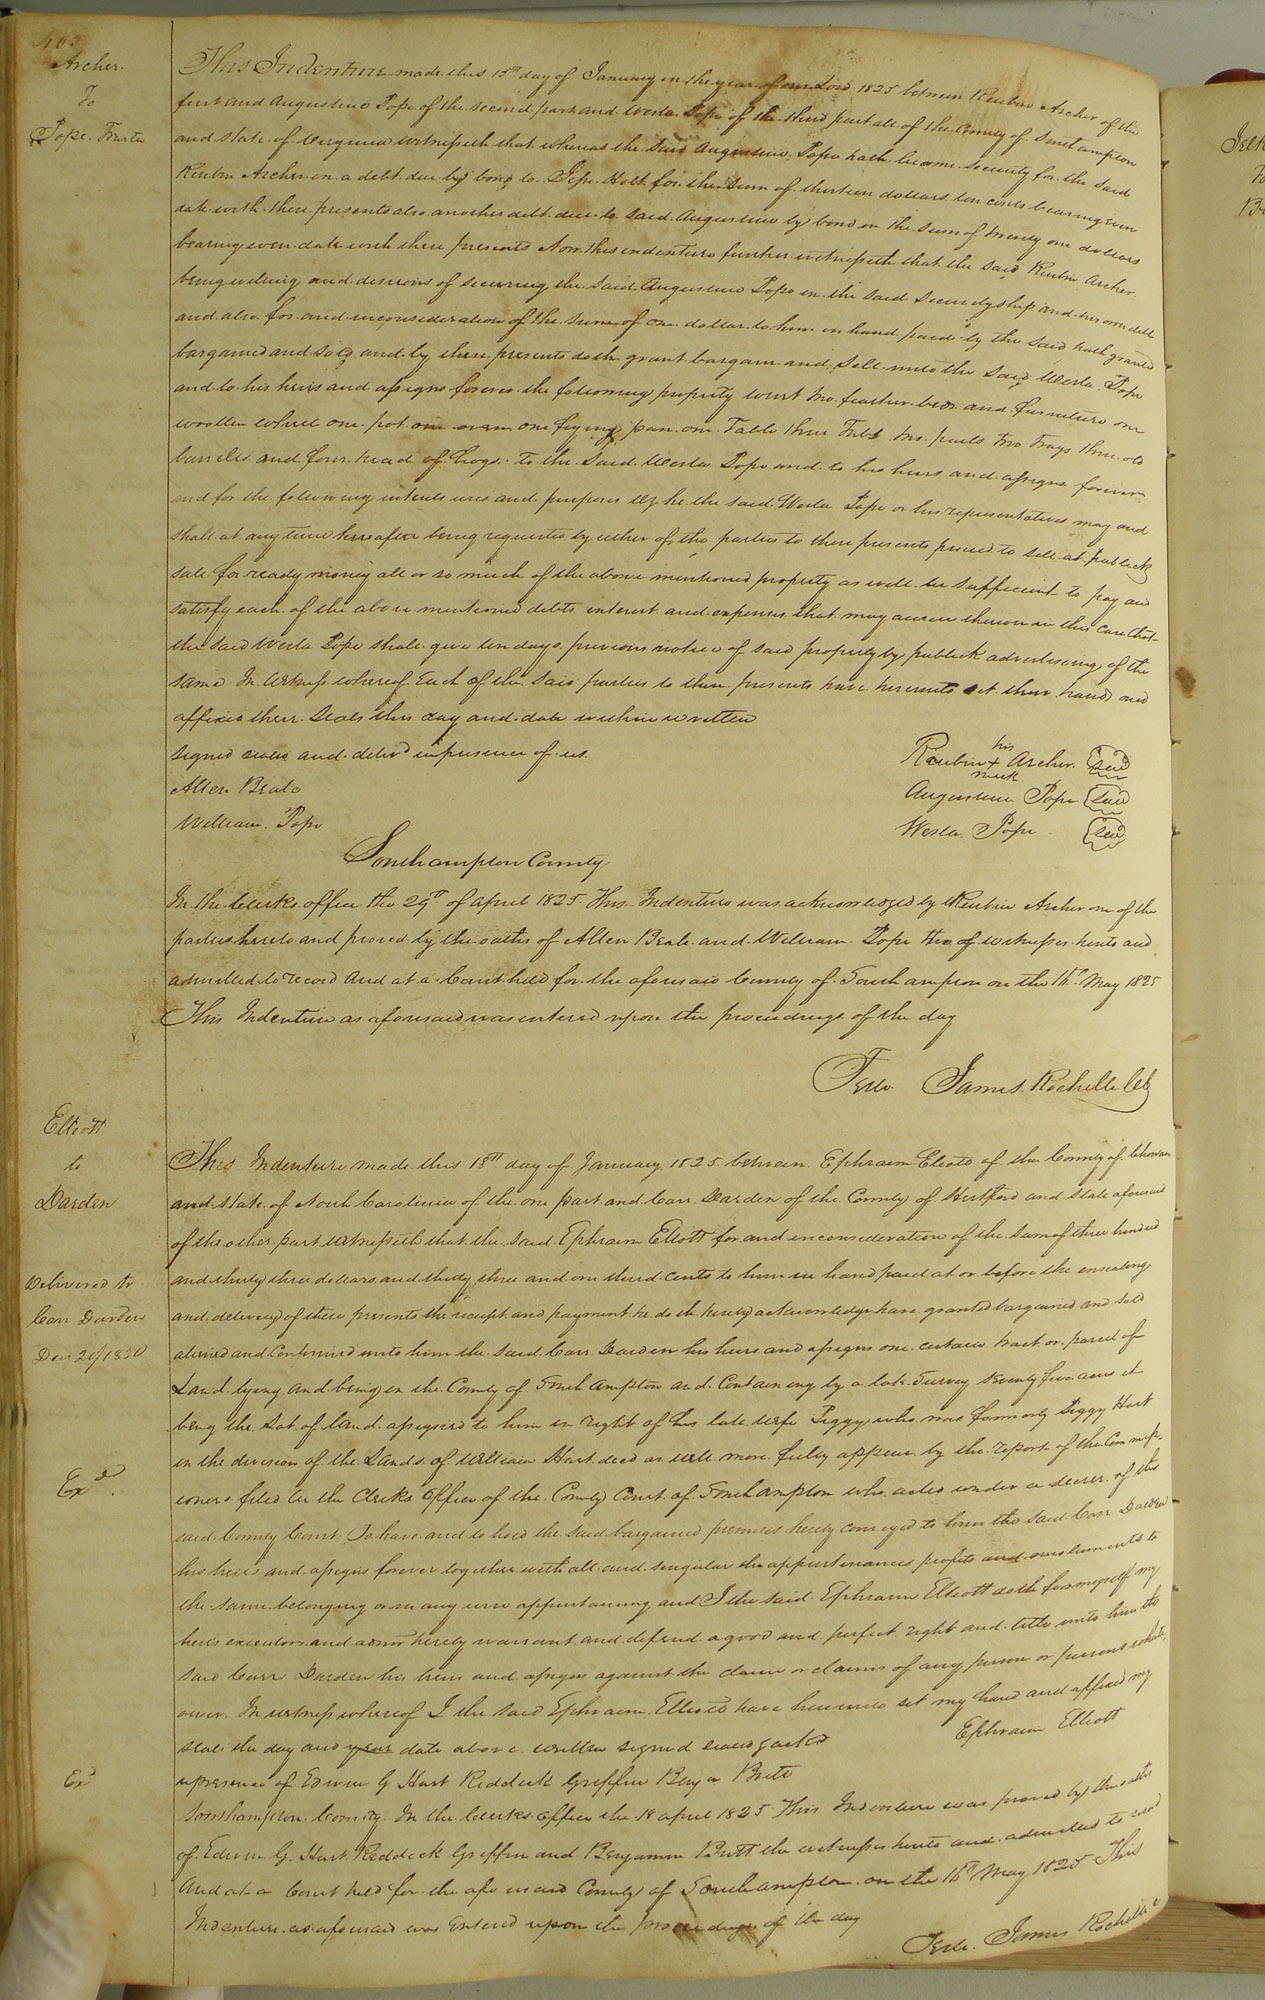 40
Archer.
To
Pope. Trustee
This Indenture made this 15th day of January in the year of our Lord 1825 between Reubin Archer of the
first and Augustine Pope of the second part and Wesla Pope of the third part all of the County of Southampton
and state of Virginia witnesseth that whereas the said Augustine Pope hath become security for the said
Reubin Archer in a debt due by bond to Holt for the sum of thirteen dollars ten cents bearing even
date with these presents also another debt due to said Augustine by bond in the sum of twenty one dollars
bearing even date with these presents Now this indenture further witnesseth that the said Reubin Archer
being willing and desirous of securing the said Augustine Pope in the said securityship and his own debt
and also for and inconsideration of the sum of one dollar to him in hand paid by the said hath granted
bargained and sold and by these presents doth grant bargain and sell unto the said Wesla Pope
and to his heirs and assigns forever the following property towit two feather beds and furniture one
woollen wheel one pot one oven one frying pan one Table three Tubs two pails two Trays three old
barrells and four head of hogs. To the said Wesla Pope and to his heirs and assigns forever
and for the following intents uses and purposes he the said Wesla Pope or his representatives may and
shall at any time hereafter being requested by either of the parties to these presents proceed to sell at publick
sale for ready money all or so much of the above mentioned property as will be sufficient to pay and
satisfy each of the above mentioned debts interest and expenses that may accrue thereon in this case that
the said Wesla Pope shall give ten days previous notice of said property by publick advertising of the
same In Witness whereof Each of the said parties to these presents have hereunto set their hands and
affixed their seals this day and date within written
signed sealed and delivd in presence of us
Allen Beale
William. Pope
his
Reubin + Archer. Seal
mark
Augustine Pope Seal
Wesla. Pope. Seal
Southampton County
In the Clerks office the 29th of april 1825 This Indenture was acknowledged by Reubin Archer one of the
parties hereto and proved by the oaths of Allen Beale and William Pope two of witnesses hereto and
admitted to record And at a Court held for the aforesaid County of Southampton on the 16th May 1825
This Indenture as aforesaid was entered upon the proceedings of the day
Teste James Rochelle Clk
Elliott
to
Darden
Delivered to
Carr Darden
Exd.
Exd
This Indenture made this 18th day of January 1825 between Ephraim Elliott of the County of Chowan
and state of North Carolina of the one part and Carr Darden of the County of Hertford and state aforesaid
of the other part witnesseth that the said Ephraim Elliott for and inconsideration of the sum of three hundred
and thirty three dollars and thirty three and one third cents to him in hand paid at or before the ensealing
and delivery of these presents the receipt and payment he doth hereby acknowledge have granted bargained and sold
aliened and Confirmed unto him the said Carr Darden his heirs and assigns one certain tract or parcel of
Land lying and being in the County of Southampton and Containing by a late survey seventy five acres it
being the Lot of land assigned to him in right of his late wife Peggy who was formerly Peggy Hart
in the division of the Lands of William Hart decd as will more fully appear by the report of the Commiss-
ioners filed in the Clerks office of the County Court of Southampton who acted under a decree of the
said County Court. To have and to hold the said bargained premises hereby conveyed to him the said Carr Darden
his heirs and assigns forever together with all and singular the appurtenances profits and emoluments to
the same belonging or in any wise appertaining and I the said Ephraim Elliott doth for myself my
heirs executors and admrs hereby warrant and defend a good and perfect right and title unto him the
said Carr Darden his heirs and assigns against the claim or claims of any person or persons whats-
oever. In witness whereof I the said Ephraim Elliott have hereunto set my hand and affixed my
seal the day and year date above written signed sealed &
Ephraim Elliott
presence of Edwin G Hart Reddick Griffin Benja Britt
Southampton County. In the Clerks office the 18 april 1825 This Indenture was proved by the oaths
of Edwin G. Hart Reddick Griffin and Benjamin Britt the witnesses hereto and admitted to record
And at a Court held for the aforesaid County of Southampton on the 16th May 1825 This
Indenture as aforesaid was Entered upon the proceedings of the day
Teste. James Rochelle C